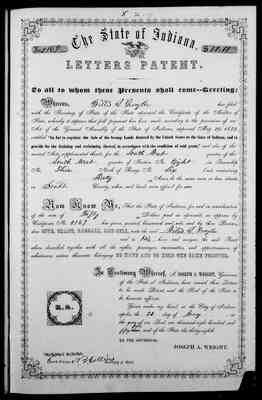 The State of Indiana,
LETTERS PATENT.
To all to whom these Presents shall come—Greeting:
Whereas, has filed
with the Secretary of State of the State aforesaid the Certificate of the Auditor of
State, whereby it appears that full payment has been made according to the provisions of an
Act of the General Assembly of the State of Indiana, approved May 29, 1852,
entitled "An Act to regulate the Sale of the Swamp Lands donated by the United States to the State of Indiana, and to
provide for the draining and reclaiming thereof, in accordance with the condition of said grant," and also of the
several Acts supplemental thereto for the South East quarter of the
South West quarter of Section No. Eight in Township
No. Three North of Range No. Six East, containing
Forty Acres, be the same more or less, situate
in Scott County, when and until more offered for sale.
Now Know Ye, That the State of Indiana, for and in consideration
of the sum of Fifty Dollars, paid as aforesaid, as appears by
Certificate No.
GIVE, GRANT, BARGAIN, AND SELL, unto the said
and to his heirs and assigns, the said Tract
above described, together with all the rights, privileges, immunities, and appurtenances of
whatsoever nature thereunto belonging, TO HAVE AND TO HOLD THE SAME FOREVER.
In Testimony Whereof, I, JOSEPH A. WRIGHT, Governor
of the State of Indiana, have caused these Letters
to be made Patent, and the Seal of the State to
be hereunto affixed.
Given under my hand, at the City of Indianapolis, this day of
the year of our Lord one thousand eight hundred and
fifty and of the State the
L. S.
BY THE GOVERNOR:
JOSEPH A. WRIGHT.
Secretary of State